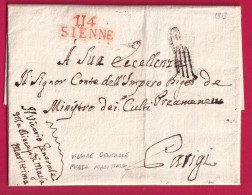 114
SIENNE
A Sua Eccellenza
Il Signor Conte dell'Impero Bigot de
Ministro dei Culti Preameneu
Parigi
Il Vicario Generale
della Diocesi di Massa
Marittima
VICAIRE GENERALE
MASSA MARITTIMA